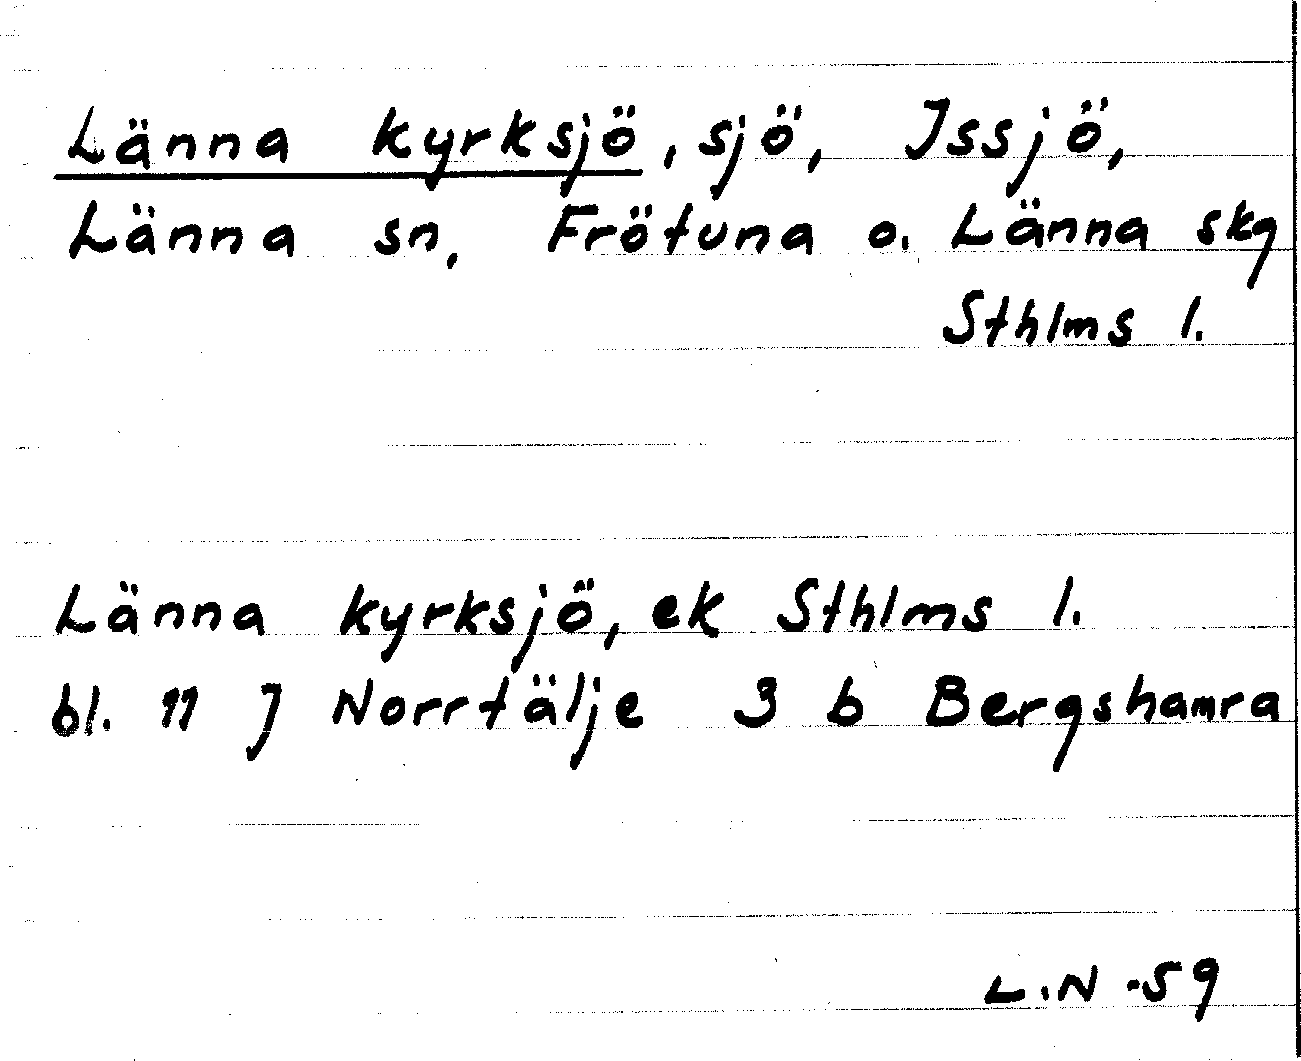 Länna kyrksjö, sjö, Issjö,
Länna sn, Frötuna o. Länna skg
Sthlms l.
Länna kyrksjö, ek Sthlms l.
bl. 11 J Norrtälje 3 b Bergshamra
L.N -59